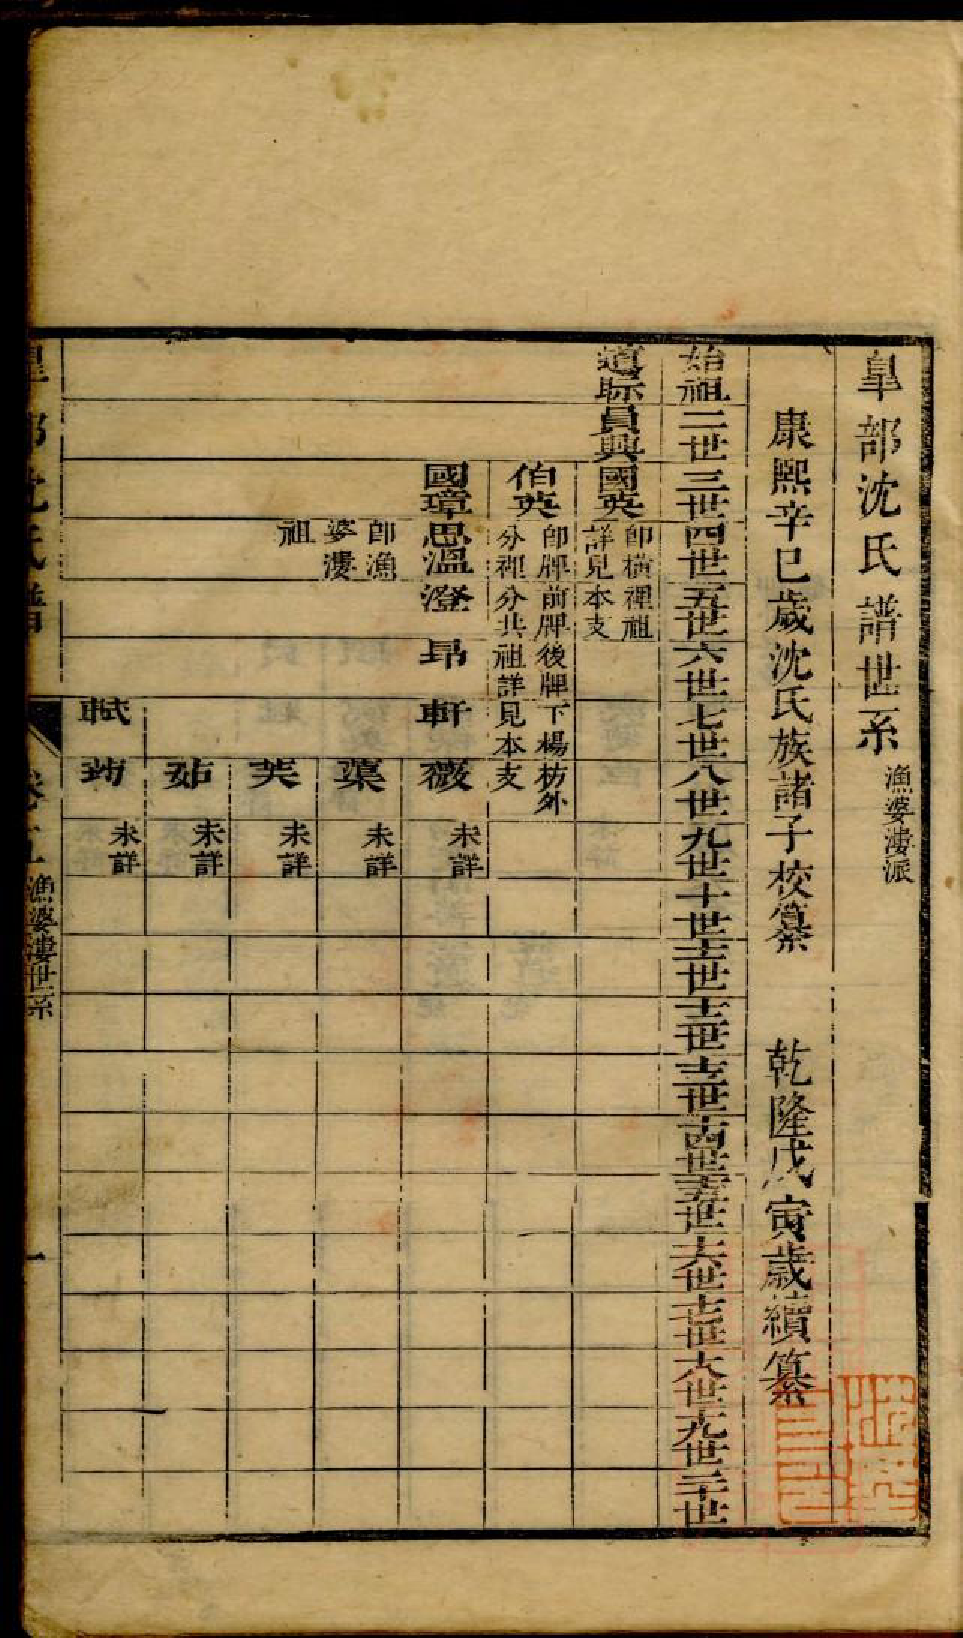 皐部沈氏譜世系
漁婆漊派
康熙辛巳歲沈氏族諸子校纂 乾隆戊寅歲續纂
始祖二世三世四世五世六世七世八世九世十世十一世十二世十三世十四世十五世十六世十七世十八世十九世二十世
道際員興國英
卽橫裡祖
詳見本支
伯英
卽牌前牌後牌下楊枋外
分裡分共祖詳見本支
國璋思溫澄昂軒薇
未詳
卽漁
婆漊
祖
蕖
未詳
芙
未詳
茹
未詳
軾
葯
未詳
皐部沈氏譜
卷 漁婆漊世系 一